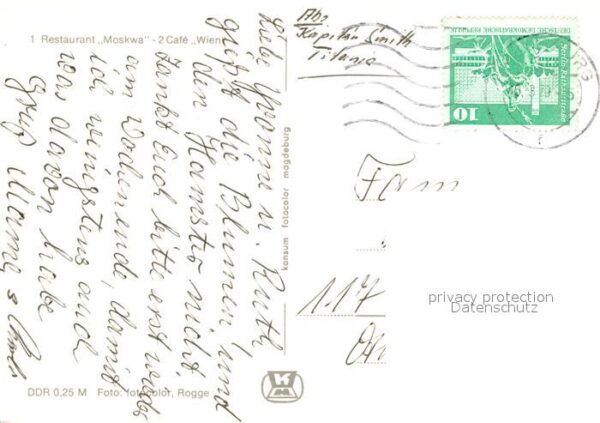 1 Restaurant „Moskwa" - 2 Café „Wien"
Abs
Kapitän Smith
Titanic
Liebe Yvonne u. Ruth,
gießt die Blumen und
den Hamster nicht,
zankt Euch bitte erst wieder
am Wochenende, damit
ich wenigstens auch
was davon habe
Gruß Mama
konsum fotocolor magdeburg
DEUTSCHE DEMOKRATISCHE REPUBLIK
Berlin, Rathausstraße
10
Fam
117
privacy protection
Datenschutz
DDR 0,25 M Foto: fotocolor, Rogge